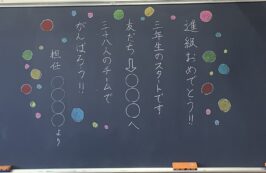 進級おめでとう!!
三年生のスタートです
友だち⇨〇〇〇へ
三十八人のチームで
がんばろう!!
担任〇〇〇〇より